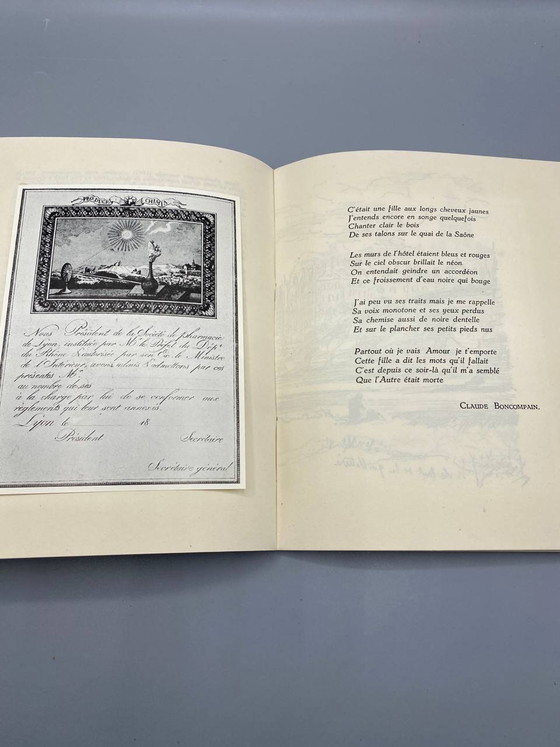 Nous Président de la Société de pharmacie
de Lyon, instituée par Mr. le Préft. du Dépt.
du Rhône & autorisée par un
le Ministre
de l'Intérieur, avons admis & admettons par ces
présentes Mr.
au nombre de ses
à la charge par lui de se conformer aux
règlements qui leur sont annexés.
Lyon le 18
Président Secrétaire
Secrétaire général
C'était une fille aux longs cheveux jaunes
J'entends encore en songe quelquefois
Chanter clair le bois
De ses talons sur le quai de la Saône
Les murs de l'hôtel étaient bleus et rouges
Sur le ciel obscur brillait le néon.
On entendait geindre un accordéon
Et ce froissement d'eau noire qui bouge
J'ai peu vu ses traits mais je me rappelle
Sa voix monotone et ses yeux perdus
Sa chemise aussi de noire dentelle
Et sur le plancher ses petits pieds nus
Partout où je vais Amour je t'emporte
Cette fille a dit les mots qu'il fallait
C'est depuis ce soir-là qu'il m'a semblé
Que l'Autre était morte
CLAUDE BONCOMPAIN.